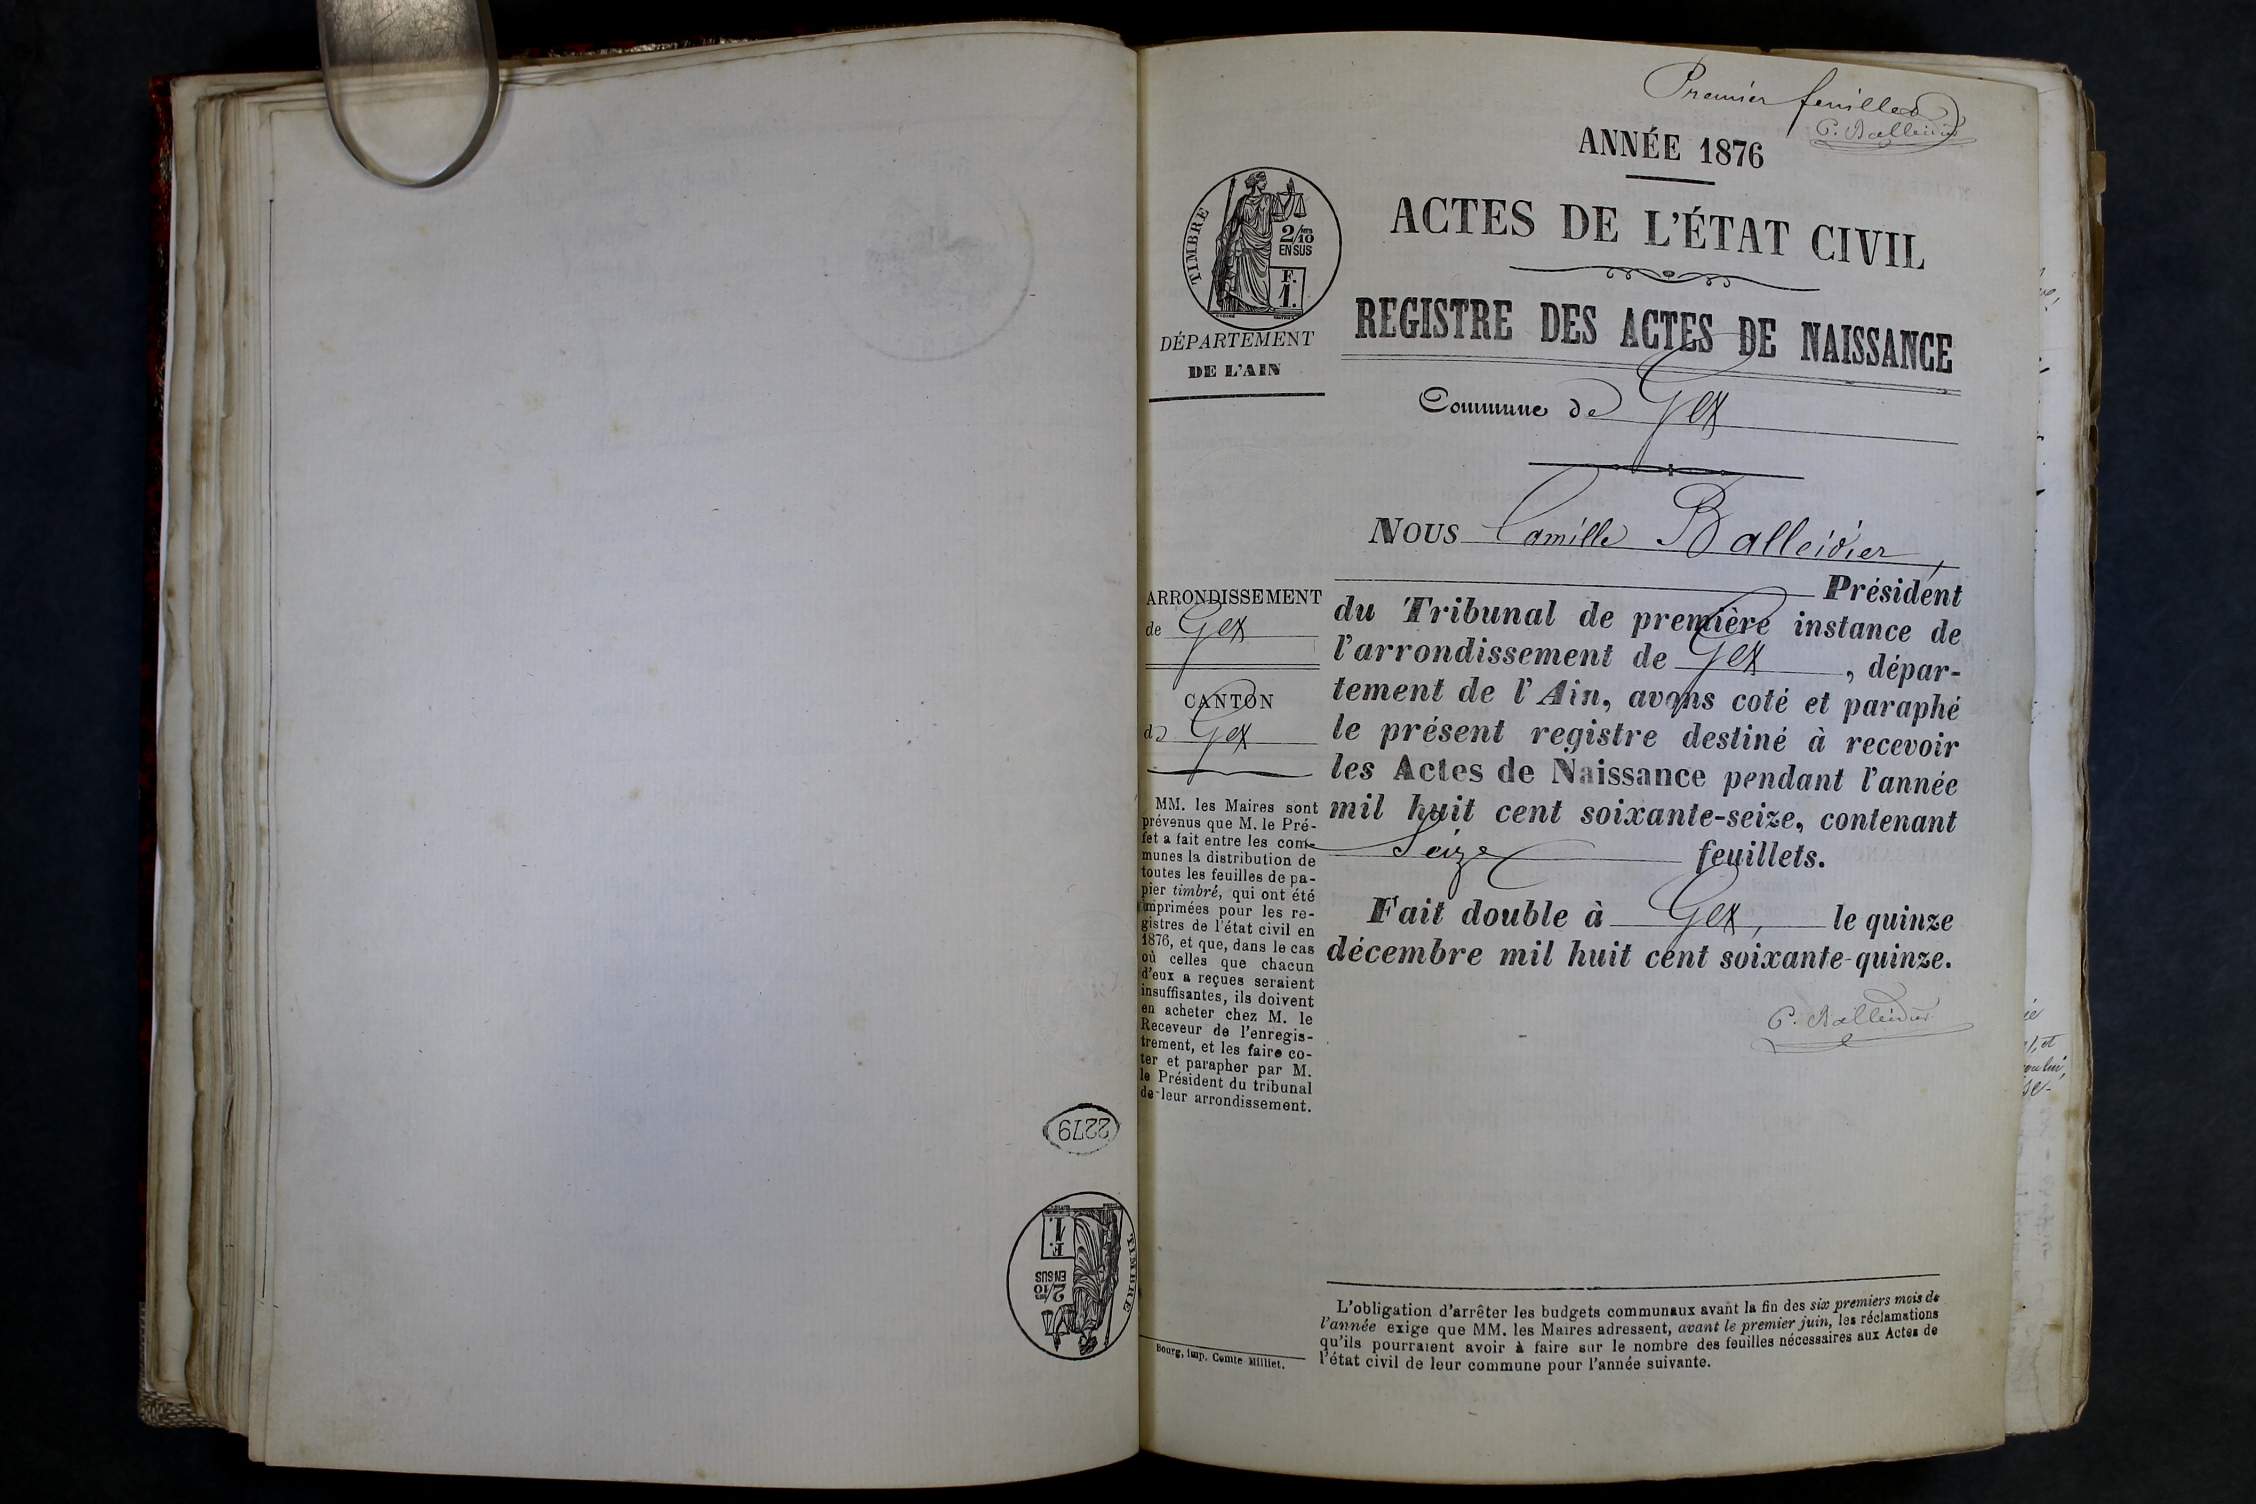 Premier feuillet
C. Balleidier
ANNÉE 1876
ACTES DE L'ÉTAT CIVIL
REGISTRE DES ACTES DE NAISSANCE
Commune de Gex
TIMBRE
2/10
EN SUS
F.
1.
DÉPARTEMENT
DE L'AIN
ARRONDISSEMENT
de Gex
CANTON
de Gex
MM. les Maires sont
prévenus que M. le Pré-
fet a fait entre les com-
munes la distribution de
toutes les feuilles de pa-
pier timbré, qui ont été
imprimées pour les re-
gistres de l'état civil en
1876, et que, dans le cas
où celles que chacun
d'eux a reçues seraient
insuffisantes, ils doivent
en acheter chez M. le
Receveur de l'enregis-
trement, et les faire co-
ter et parapher par M.
le Président du tribunal
de leur arrondissement.
NOUS Camille Balleidier,
Président
du Tribunal de première instance de
l'arrondissement de Gex, dépar-
tement de l'Ain, avons coté et paraphé
le présent registre destiné à recevoir
les Actes de Naissance pendant l'année
mil huit cent soixante-seize, contenant
Seize feuillets.
Fait double à Gex, le quinze
décembre mil huit cent soixante-quinze.
C. Balleidier
L'obligation d'arrêter les budgets communaux avant la fin des six premiers mois de
l'année exige que MM. les Maires adressent, avant le premier juin, les réclamations
qu'ils pourraient avoir à faire sur le nombre des feuilles nécessaires aux Actes de
l'état civil de leur commune pour l'année suivante.
Bourg, imp. Comte Milliet.
2279
TIMBRE
2/10
EN SUS
F.
1.